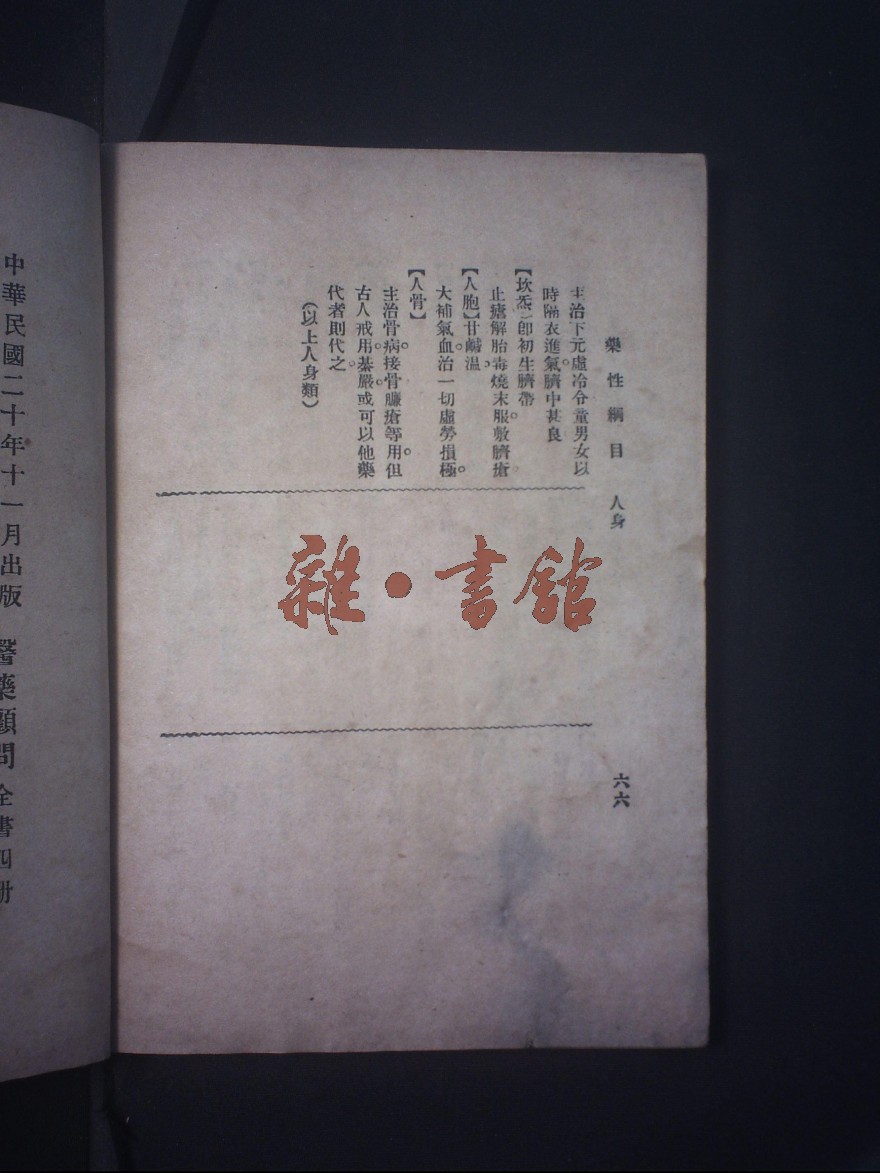 藥性綱目　人身
六六
主治下元虛冷令童男女以
時隔衣進氣臍中甚良
【坎炁】卽初生臍帶
止瘧解胎毒燒末服敷臍瘡
【人胞】甘鹹溫
大補氣血治一切虛勞損極。
【人骨】
主治骨病。接骨臁瘡等用。但
古人戒用。綦嚴。或可以他藥
代者則代之
（以上人身類）
雜●書館
中華民國二十年十一月出版
醫藥顧問全書四册